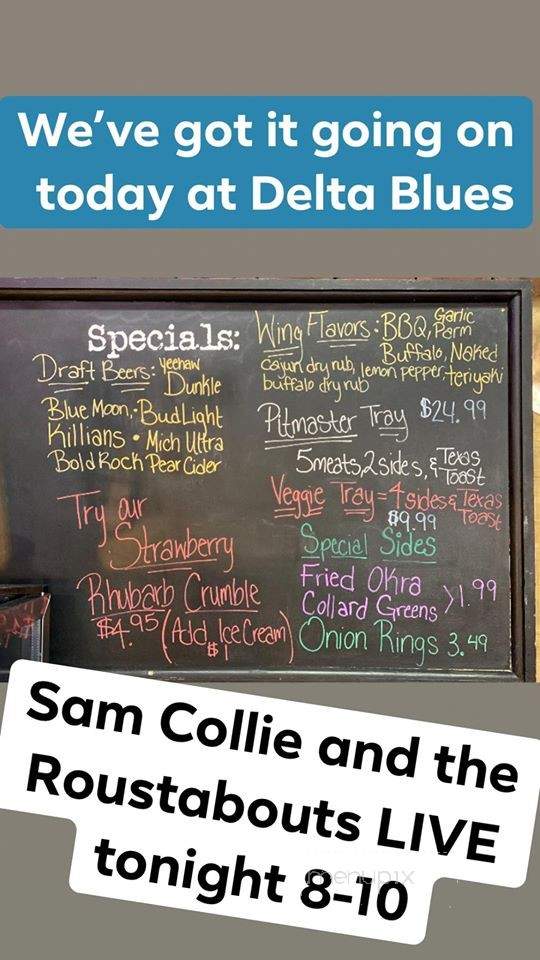 We've got it going on
today at Delta Blues
Specials:
Draft Beers: Yeehaw
Dunkle
Blue Moon, • Bud Light
Killians • Mich Ultra
Bold Rock Pear Cider
Try our
Strawberry
Rhubarb Crumble
$4.95 (Add Ice Cream)
$1
Wing Flavors: BBQ, Garlic Parm
Buffalo, Naked
Cajun dry rub, lemon pepper, teriyaki
buffalo dry rub
Pitmaster Tray $24.99
5 meats, 2 sides, & Texas Toast
Veggie Tray = 4 sides & Texas Toast
$9.99
Special Sides
Fried Okra
Collard Greens >1.99
Onion Rings 3.49
Sam Collie and the
Roustabouts LIVE
tonight 8-10
menupix